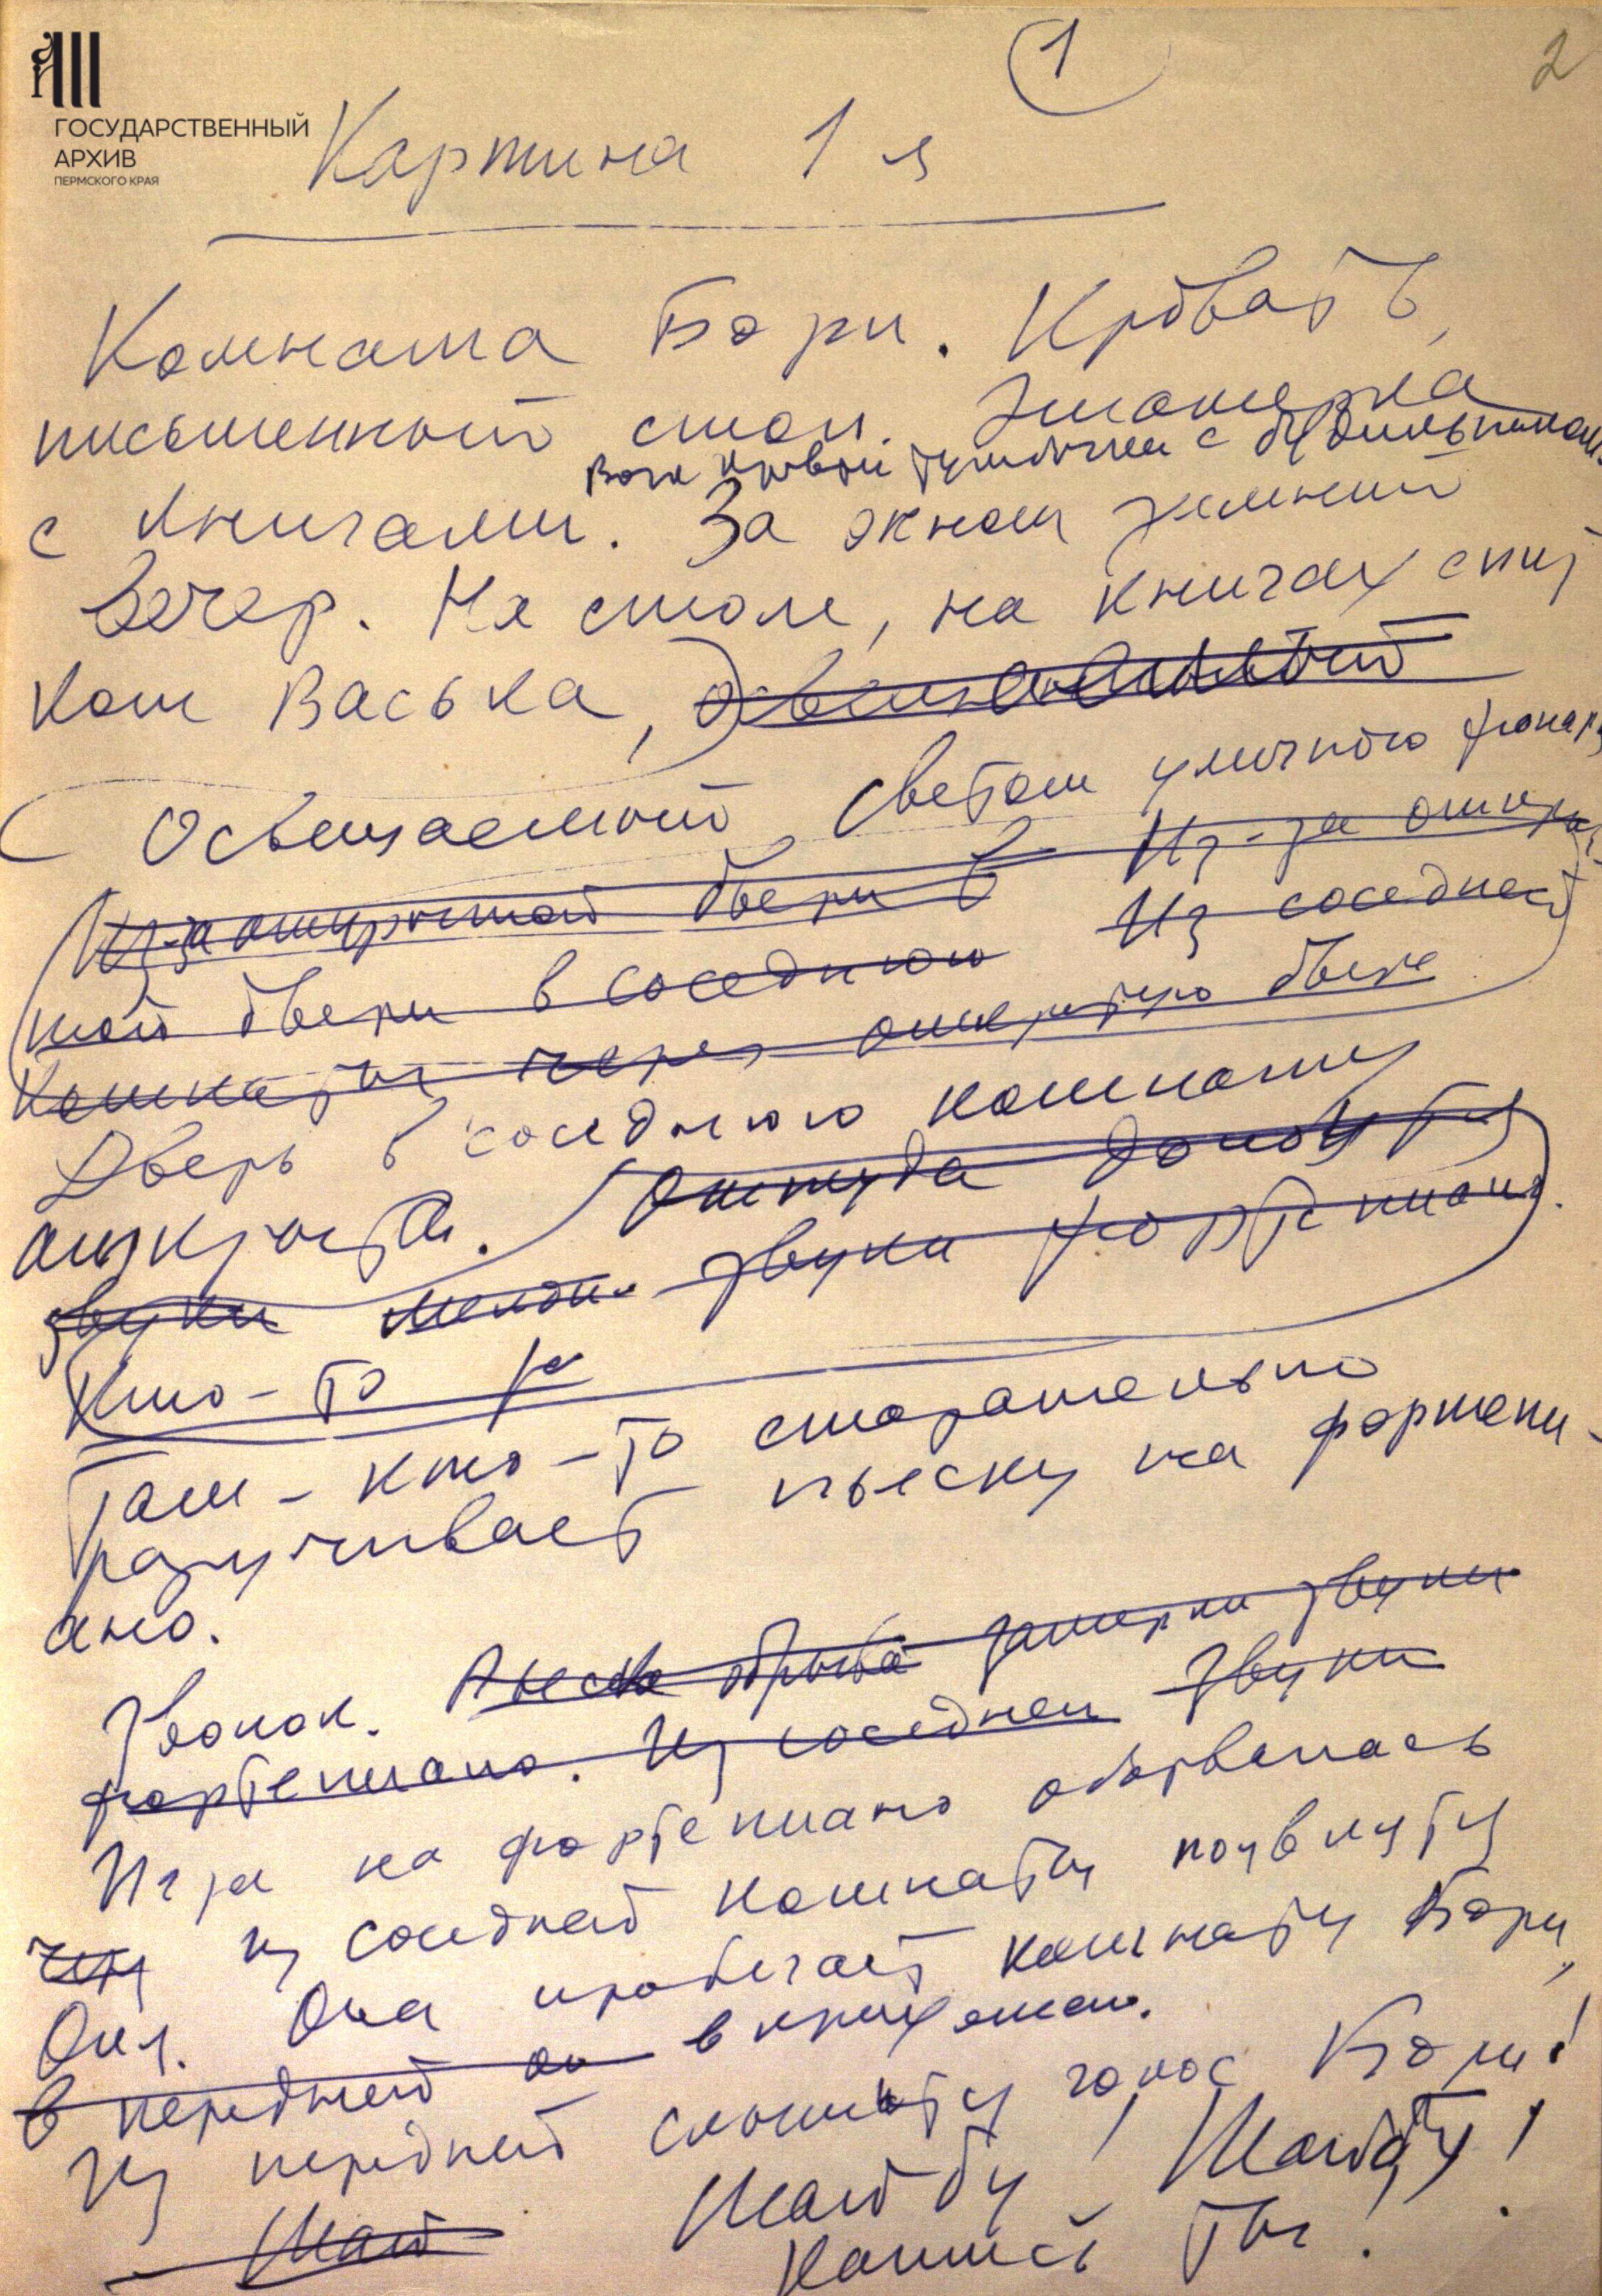 1
2
ГОСУДАРСТВЕННЫЙ
АРХИВ
ПЕРМСКОГО КРАЯ
Картина 1я
Комната Бори. Кровать,
письменный стол. Этажерка
Возле кровати тумбочка с будильником.
с книгами. За окном зимний
вечер. На столе, на книгах спит
кот Васька, освещаемый
освещаемый светом уличного фонаря
Из-за открытой двери в Из-за откры-
той двери в соседнюю Из соседней
комнаты через открытую дверь
Дверь в соседнюю комнату
открыта. Оттуда доносятся
звуки мелоди звуки фортепиано.
Кто-то ра
Там - кто-то старательно
разучивает пьеску на фортепи-
ано.
Звонок. Пьеска замерли звуки
фортепиано. Из соседней Звуки
Игра на фортепиано оборвалась
из соседней комнаты
Оля. Она пробегает комнату Бори,
в передней он в прихожию.
Из передней слышится голос Бори!
Шай Шайбу! Шайбу!
ты!